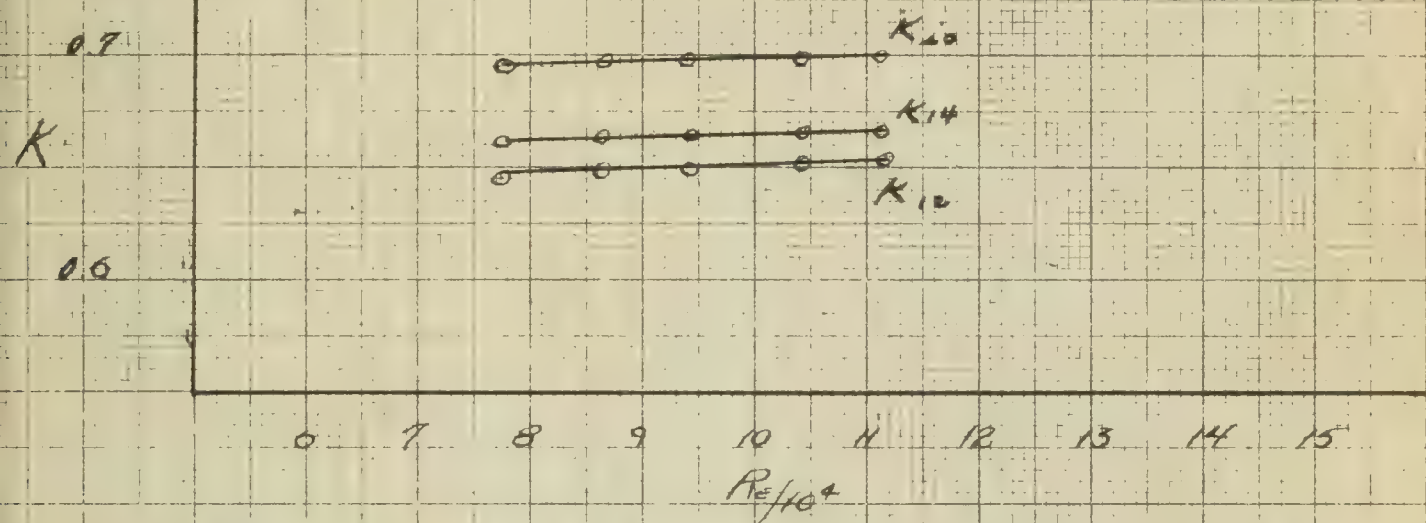 0.7
K
K₁₄
K₁₂
0.6
6 7 8 9 10 11 12 13 14 15
Re/10⁴